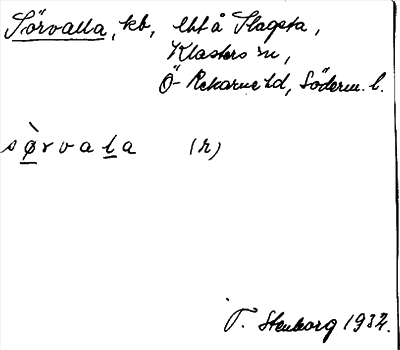 Sörvalla, kb, lht å Slagsta,
Klosters sn,
Ö-Rekarne hd, Söderm. l.
sø̀rvala (h)
T. Stenborg 1932.